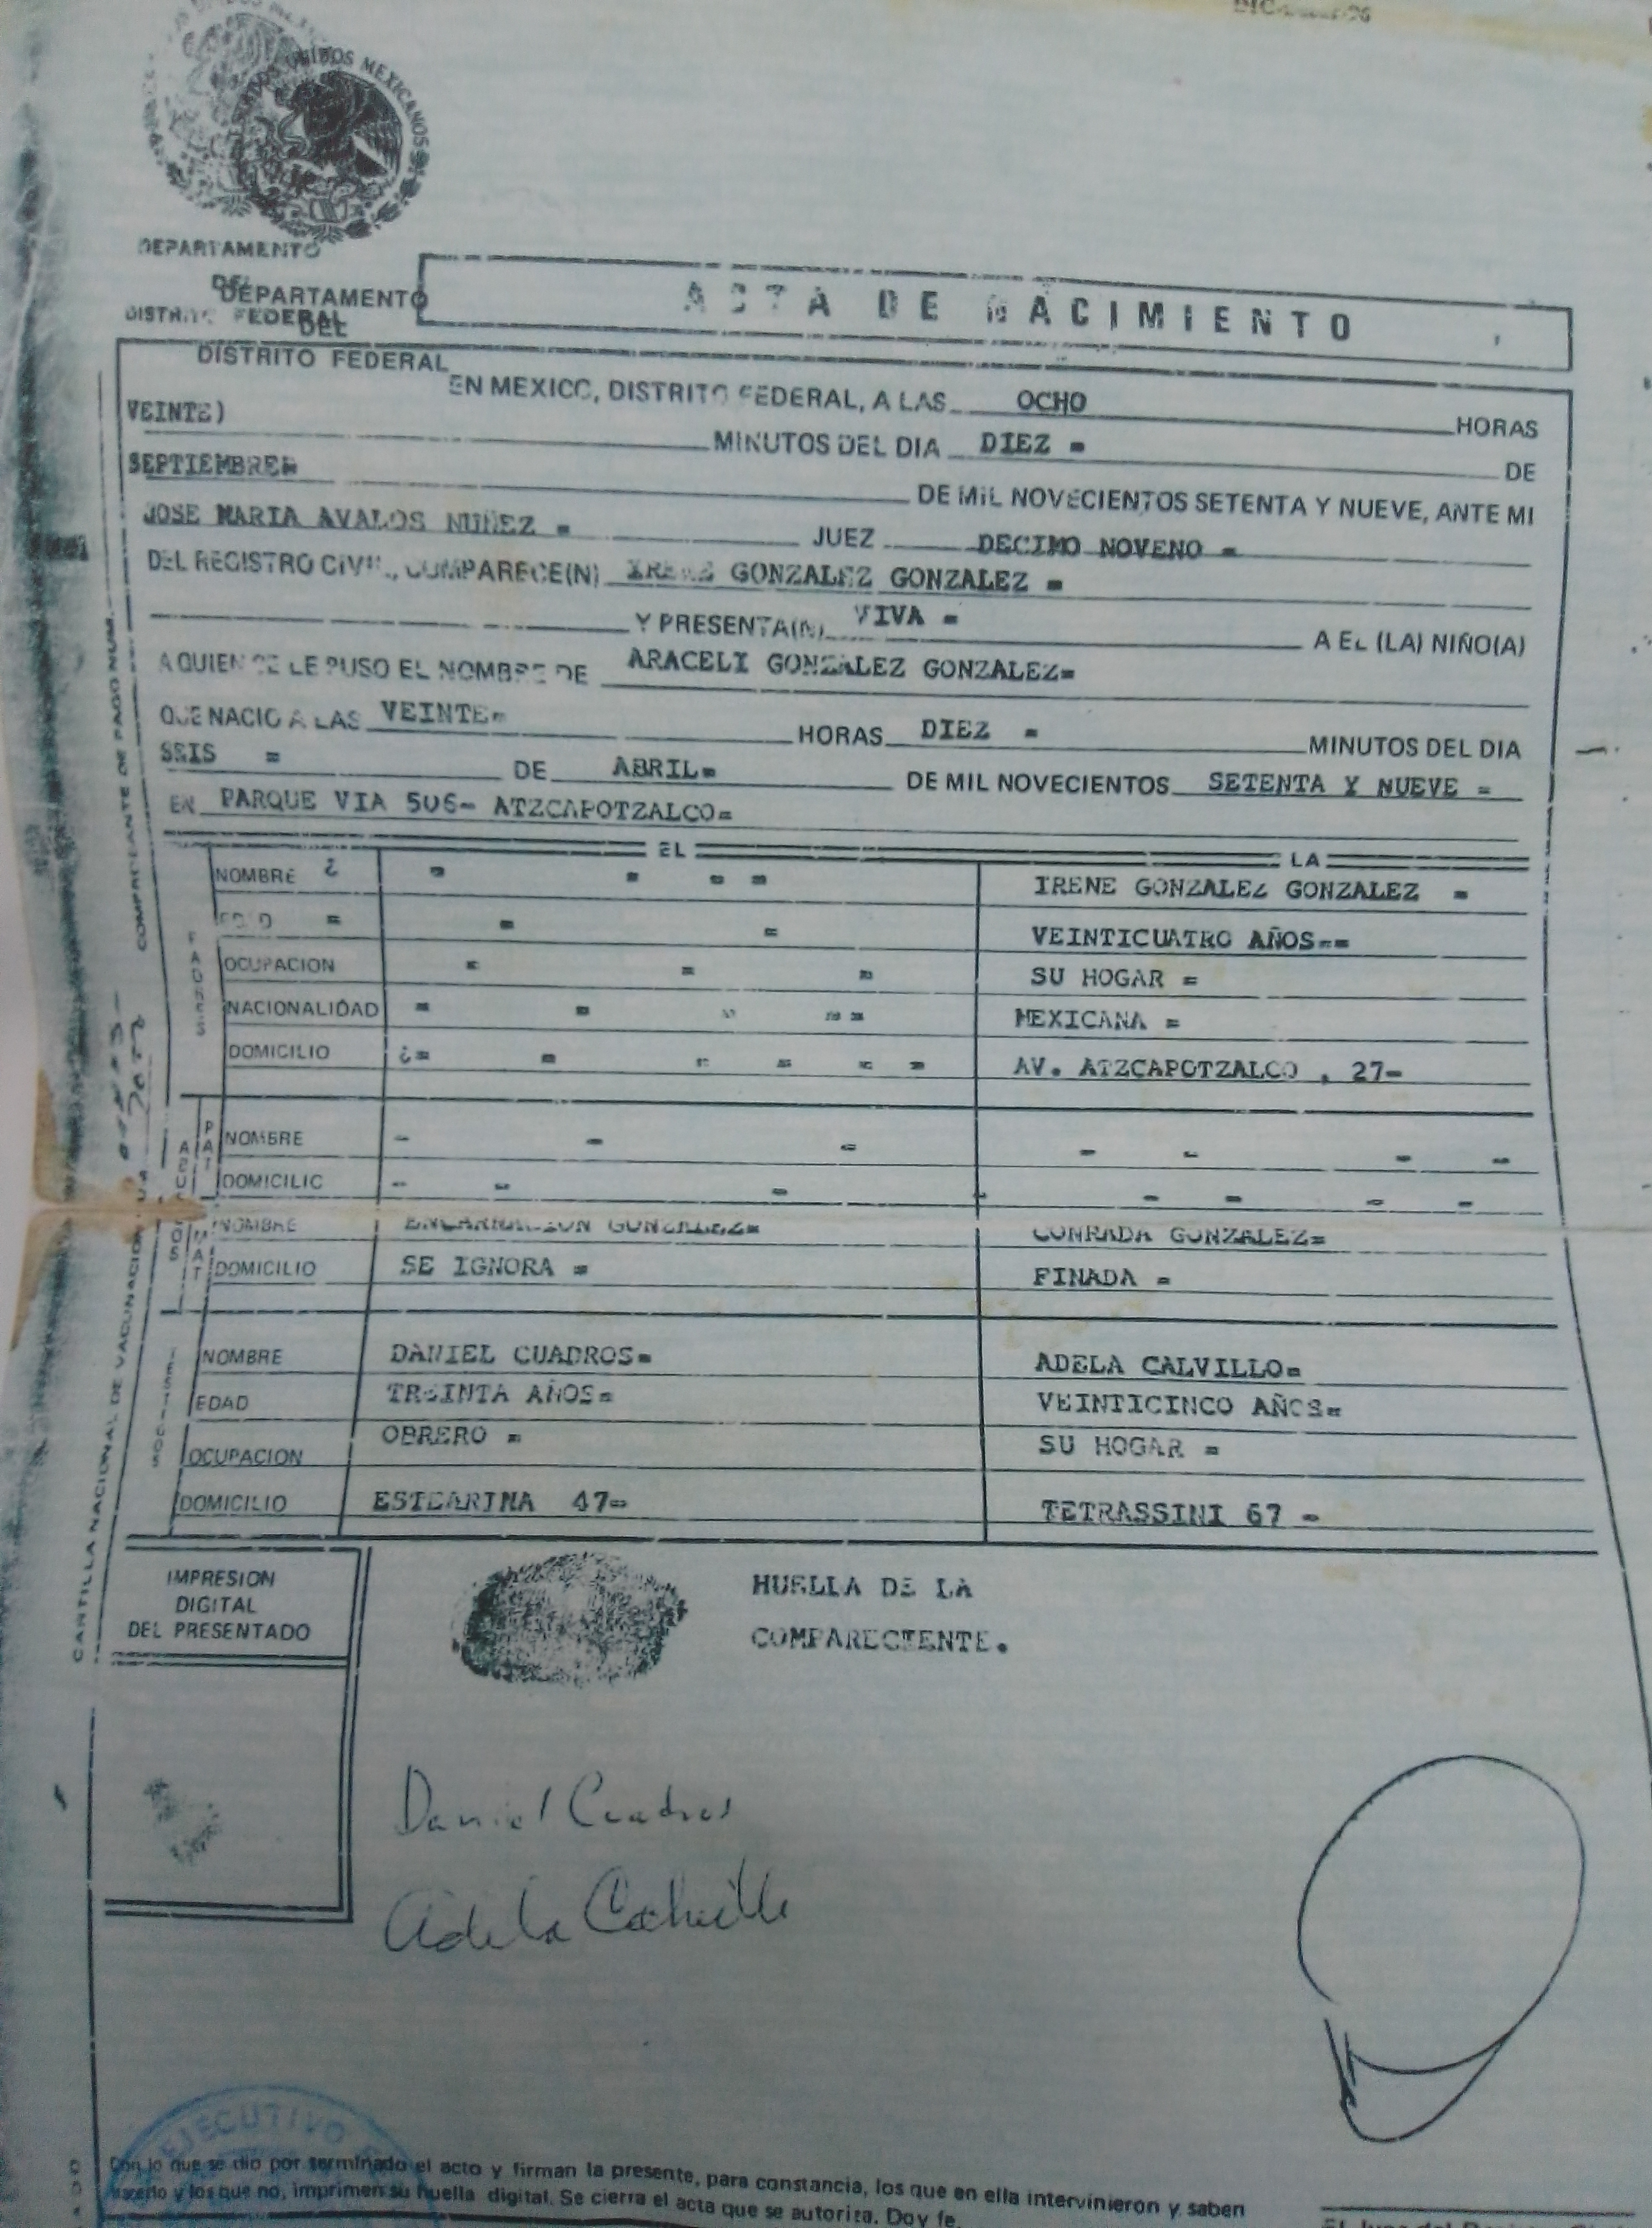 UNIDOS MEXICANOS
DEPARTAMENTO
DEL
DISTRITO FEDERAL
DEPARTAMENTO
DEL
DISTRITO FEDERAL
ACTA DE NACIMIENTO
EN MEXICO, DISTRITO FEDERAL, A LAS OCHO HORAS
VEINTE) MINUTOS DEL DIA DIEZ = DE
SEPTIEMBRE= DE MIL NOVECIENTOS SETENTA Y NUEVE, ANTE MI
JOSE MARIA AVALOS NUÑEZ = JUEZ DECIMO NOVENO =
DEL REGISTRO CIVIL, COMPARECE(N) IRENE GONZALEZ GONZALEZ =
Y PRESENTA(N) VIVA = A EL (LA) NIÑO(A)
A QUIEN SE LE PUSO EL NOMBRE DE ARACELI GONZALEZ GONZALEZ=
QUE NACIO A LAS VEINTE= HORAS DIEZ = MINUTOS DEL DIA
SEIS = DE ABRIL= DE MIL NOVECIENTOS SETENTA Y NUEVE =
EN PARQUE VIA 506- ATZCAPOTZALCO=
EL LA
PADRES
NOMBRE ¿ = = = = IRENE GONZALEZ GONZALEZ =
EDAD = = = VEINTICUATRO AÑOS==
OCUPACION = = = SU HOGAR =
NACIONALIDAD = = = = = MEXICANA =
DOMICILIO ¿= = = = = = AV. ATZCAPOTZALCO , 27-
ABUELOS
PAT
NOMBRE - - - - - - -
DOMICILIO - - - - - - -
MAT
NOMBRE ENCARNACION GONZALEZ= CONRADA GONZALEZ=
DOMICILIO SE IGNORA = FINADA =
TESTIGOS
NOMBRE DANIEL CUADROS= ADELA CALVILLO=
EDAD TREINTA AÑOS= VEINTICINCO AÑOS=
OCUPACION OBRERO = SU HOGAR =
DOMICILIO ESTEARINA 47= TETRASSINI 67 -
CARTILLA NACIONAL DE VACUNACION COMPROBANTE DE PAGO NUM.
IMPRESION
DIGITAL
DEL PRESENTADO
HUELLA DE LA
COMPARECIENTE.
Daniel Cuadros
Adela Calvillo
EJECUTIVO
Con lo que se dio por terminado el acto y firman la presente, para constancia, los que en ella intervinieron y saben
hacerlo y los que no, imprimen su huella digital. Se cierra el acta que se autoriza. Doy fe.